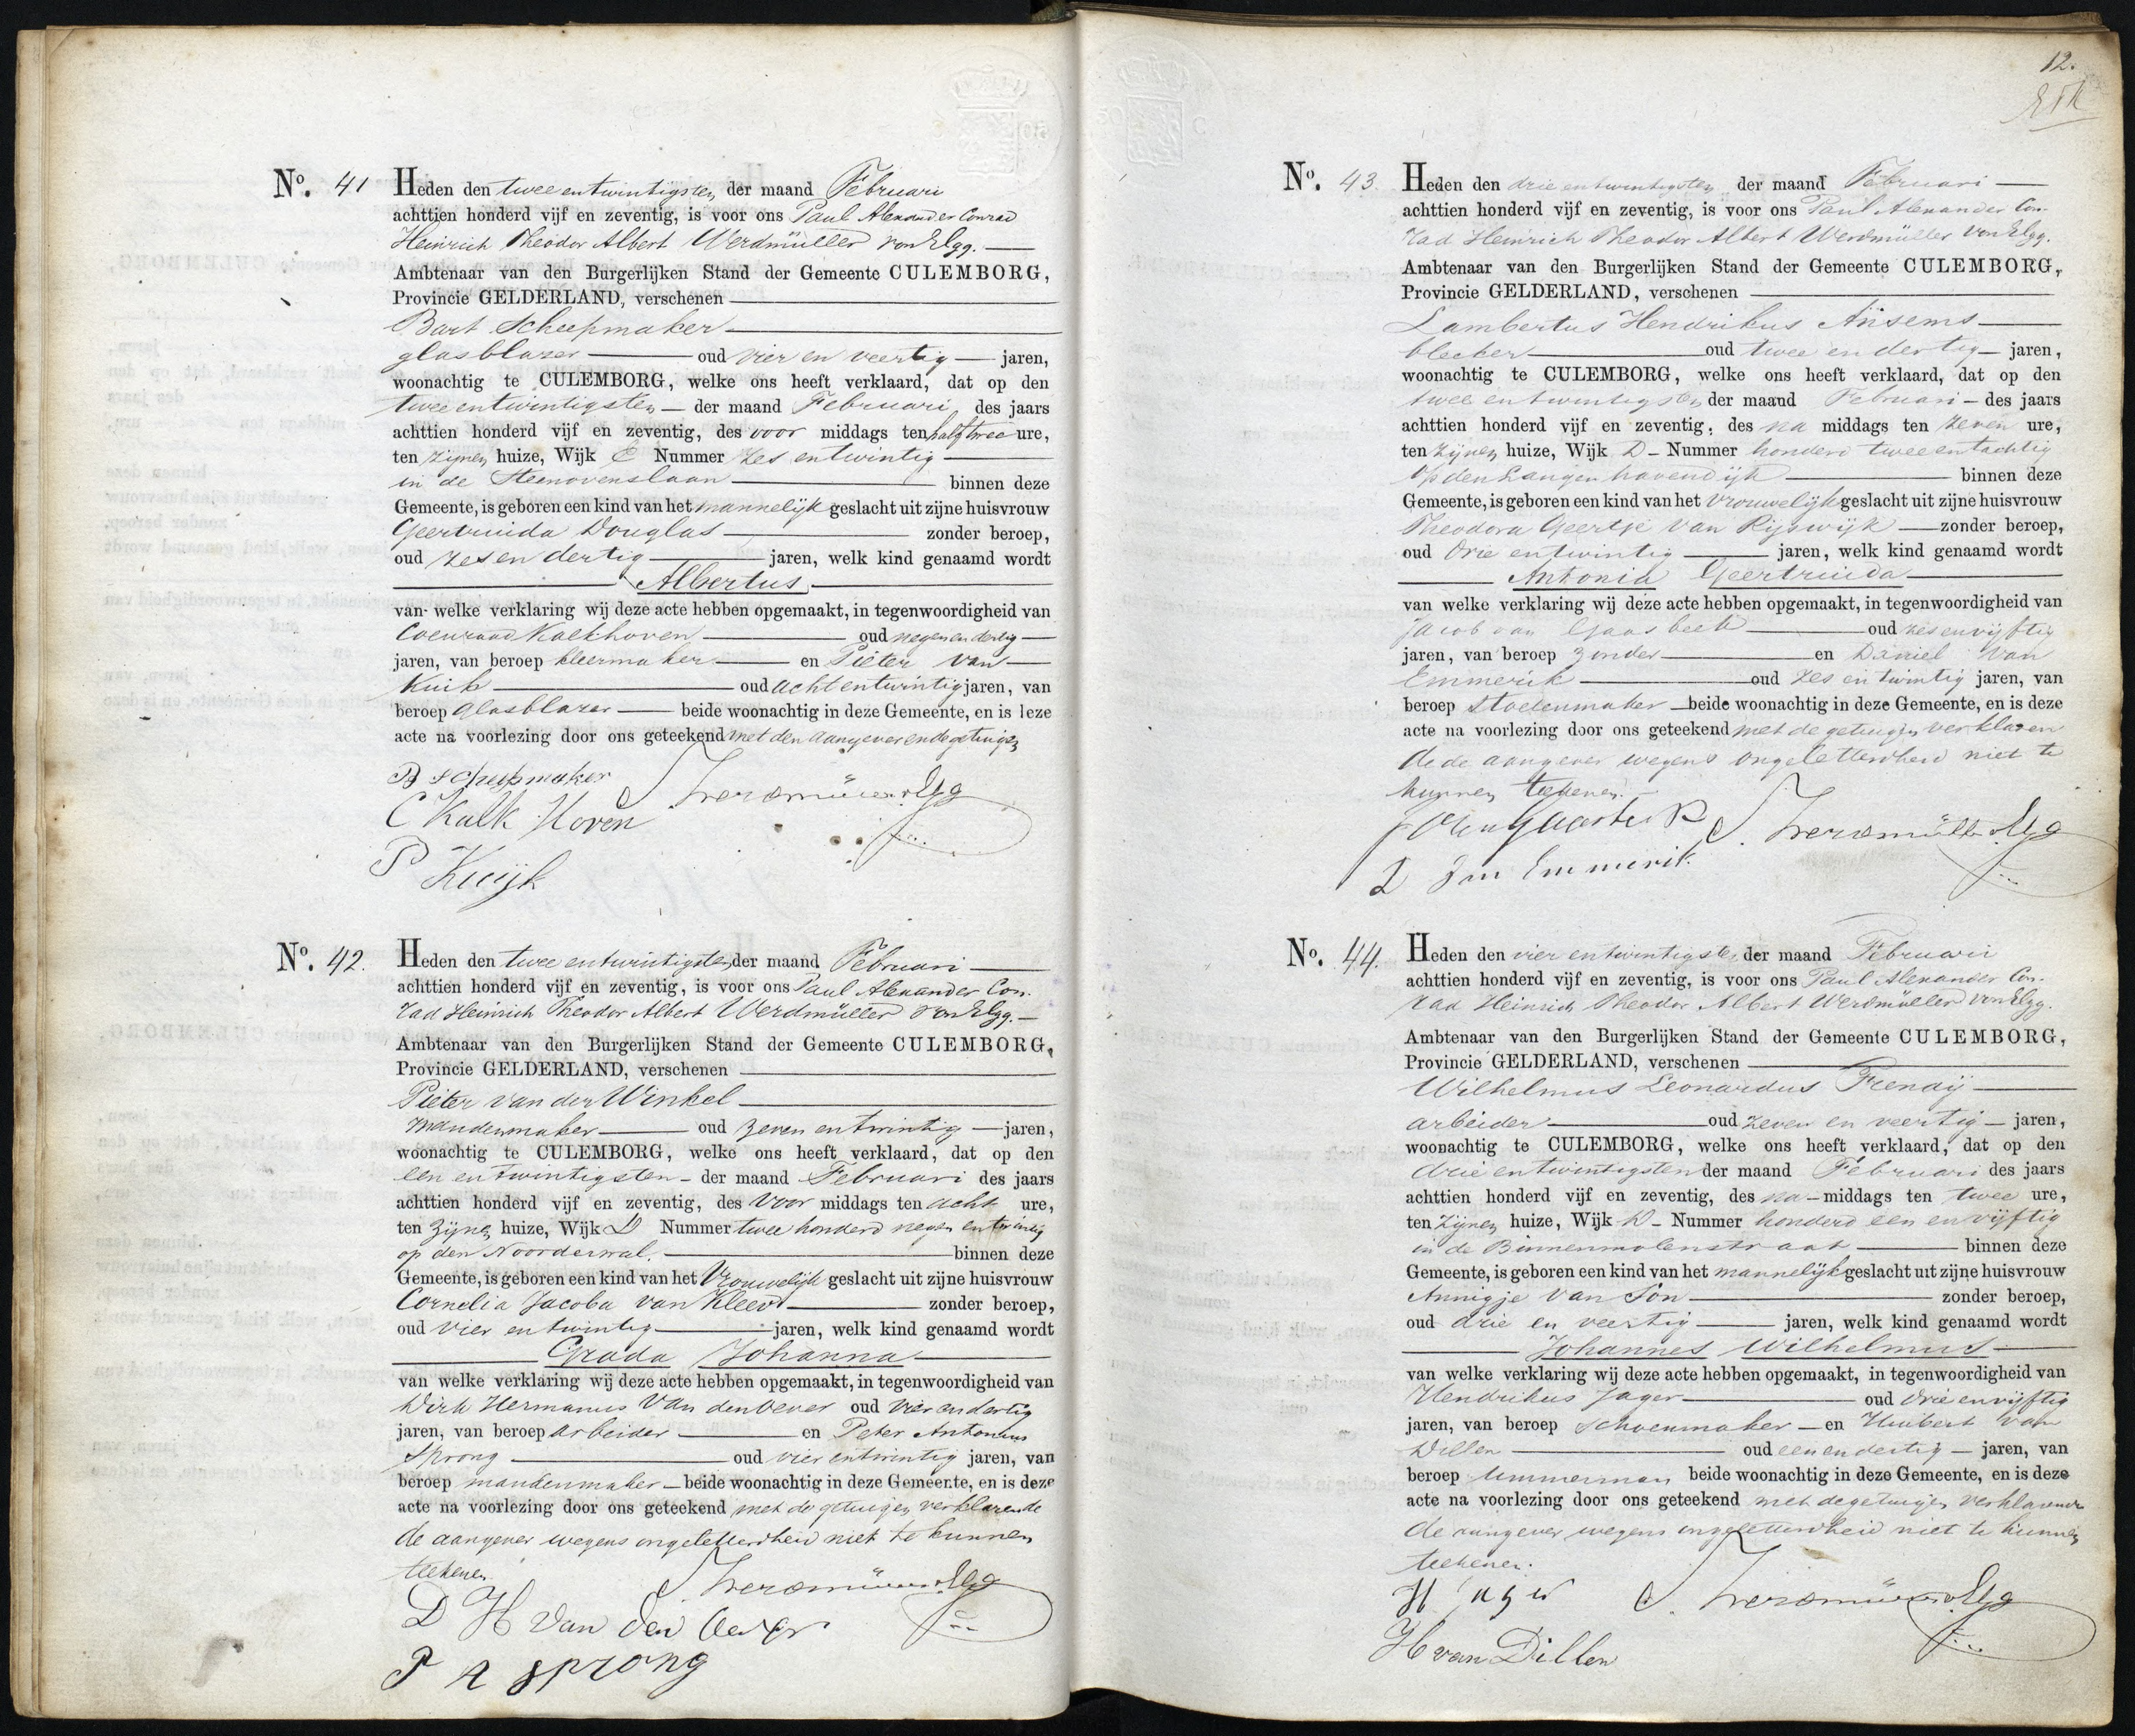 No. 41 Heden den twee en twintigsten der maand Februari
achttien honderd vijf en zeventig, is voor ons Paul Alexander Conrad
Heinrich Theodor Albert Werdmüller von Elgg.
Ambtenaar van den Burgerlijken Stand der Gemeente CULEMBORG,
Provincie GELDERLAND, verschenen
Bart Scheepmaker
glasblazer oud vier en veertig jaren,
woonachtig te CULEMBORG, welke ons heeft verklaard, dat op den
twee en twintigsten der maand Februari des jaars
achttien honderd vijf en zeventig, des voor middags ten half twee ure,
ten zijnen huize, Wijk E Nummer zes en twintig
in de Steenovenslaan binnen deze
Gemeente, is geboren een kind van het mannelijk geslacht uit zijne huisvrouw
Geertruida Douglas zonder beroep,
oud zes en dertig jaren, welk kind genaamd wordt
Albertus
van welke verklaring wij deze acte hebben opgemaakt, in tegenwoordigheid van
Coenraad Kalkhoven oud negen en dertig
jaren, van beroep kleermaker en Pieter van
Kuik oud acht en twintig jaren, van
beroep glasblazer beide woonachtig in deze Gemeente, en is deze
acte na voorlezing door ons geteekend met den aangever en de getuigen
B Scheepmaker
C Kalk Hoven
P Kuijk
No. 42. Heden den twee en twintigsten der maand Februari
achttien honderd vijf en zeventig, is voor ons Paul Alexander Con-
rad Heinrich Theodor Albert Werdmüller von Elgg.
Ambtenaar van den Burgerlijken Stand der Gemeente CULEMBORG,
Provincie GELDERLAND, verschenen
Pieter van der Winkel
mandenmaker oud zeven en twintig jaren,
woonachtig te CULEMBORG, welke ons heeft verklaard, dat op den
een en twintigsten der maand Februari des jaars
achttien honderd vijf en zeventig, des voor middags ten acht ure,
ten zijnen huize, Wijk D Nummer twee honderd negen en twintig
op den Noorderwal. binnen deze
Gemeente, is geboren een kind van het Vrouwelijk geslacht uit zijne huisvrouw
Cornelia Jacoba van Kleef zonder beroep,
oud vier en twintig jaren, welk kind genaamd wordt
Grada Johanna
van welke verklaring wij deze acte hebben opgemaakt, in tegenwoordigheid van
Dirk Hermanus van den Oever oud vier en dertig
jaren, van beroep arbeider en Peter Antonius
Sprong oud vier en twintig jaren, van
beroep mandenmaker beide woonachtig in deze Gemeente, en is deze
acte na voorlezing door ons geteekend met de getuigen verklarende
de aangever wegens ongeletterdheid niet te kunnen
teekenen
D H van den Oever
P A sprong
12.
No. 43. Heden den drie en twintigsten der maand Februari
achttien honderd vijf en zeventig, is voor ons Paul Alexander Con-
rad Heinrich Theodor Albert Werdmüller von Elgg.
Ambtenaar van den Burgerlijken Stand der Gemeente CULEMBORG,
Provincie GELDERLAND, verschenen
Lambertus Hendrikus Ansems
bleeker oud twee en dertig jaren,
woonachtig te CULEMBORG, welke ons heeft verklaard, dat op den
twee en twintigsten der maand Februari des jaars
achttien honderd vijf en zeventig, des na middags ten zeven ure,
ten zijnen huize, Wijk D Nummer honderd twee en tachtig
op den Langen havendijk binnen deze
Gemeente, is geboren een kind van het vrouwelijk geslacht uit zijne huisvrouw
Theodora Geertje van Rijswijk zonder beroep,
oud drie en twintig jaren, welk kind genaamd wordt
Antonia Geertruida
van welke verklaring wij deze acte hebben opgemaakt, in tegenwoordigheid van
Jacob van Gaasbeek oud zes en vijftig
jaren, van beroep zonder en Daniel van
Emmerik oud zes en twintig jaren, van
beroep Stoelenmaker beide woonachtig in deze Gemeente, en is deze
acte na voorlezing door ons geteekend met de getuigen verklaren
de de aangever wegens ongeletterdheid niet te
kunnen teekenen.
D van Emmerik
No. 44. Heden den vier en twintigsten der maand Februari
achttien honderd vijf en zeventig, is voor ons Paul Alexander Con-
rad Heinrich Theodor Albert Werdmüller von Elgg.
Ambtenaar van den Burgerlijken Stand der Gemeente CULEMBORG,
Provincie GELDERLAND, verschenen
Wilhelmus Leonardus Frenaij
arbeider oud zeven en veertig jaren,
woonachtig te CULEMBORG, welke ons heeft verklaard, dat op den
drie en twintigsten der maand Februari des jaars
achttien honderd vijf en zeventig, des na middags ten twee ure,
ten zijnen huize, Wijk D Nummer honderd een en vijftig
in de Binnenmolenstraat binnen deze
Gemeente, is geboren een kind van het mannelijk geslacht uit zijne huisvrouw
Annigje van Son zonder beroep,
oud drie en veertig jaren, welk kind genaamd wordt
Johannes Wilhelmus
van welke verklaring wij deze acte hebben opgemaakt, in tegenwoordigheid van
Hendrikus Jager oud drie en vijftig
jaren, van beroep schoenmaker en Huibert van
Dillen oud een en dertig jaren, van
beroep timmerman beide woonachtig in deze Gemeente, en is deze
acte na voorlezing door ons geteekend met de getuigen verklarende
de aangever wegens ongeletterdheid niet te kunnen
teekenen.
H Jager
H van Dillen